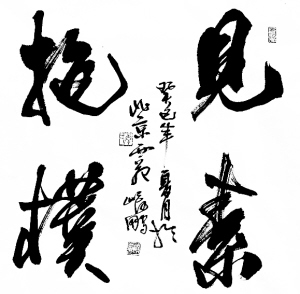 見素
抱樸
癸巳年夏月於
北京
鵬